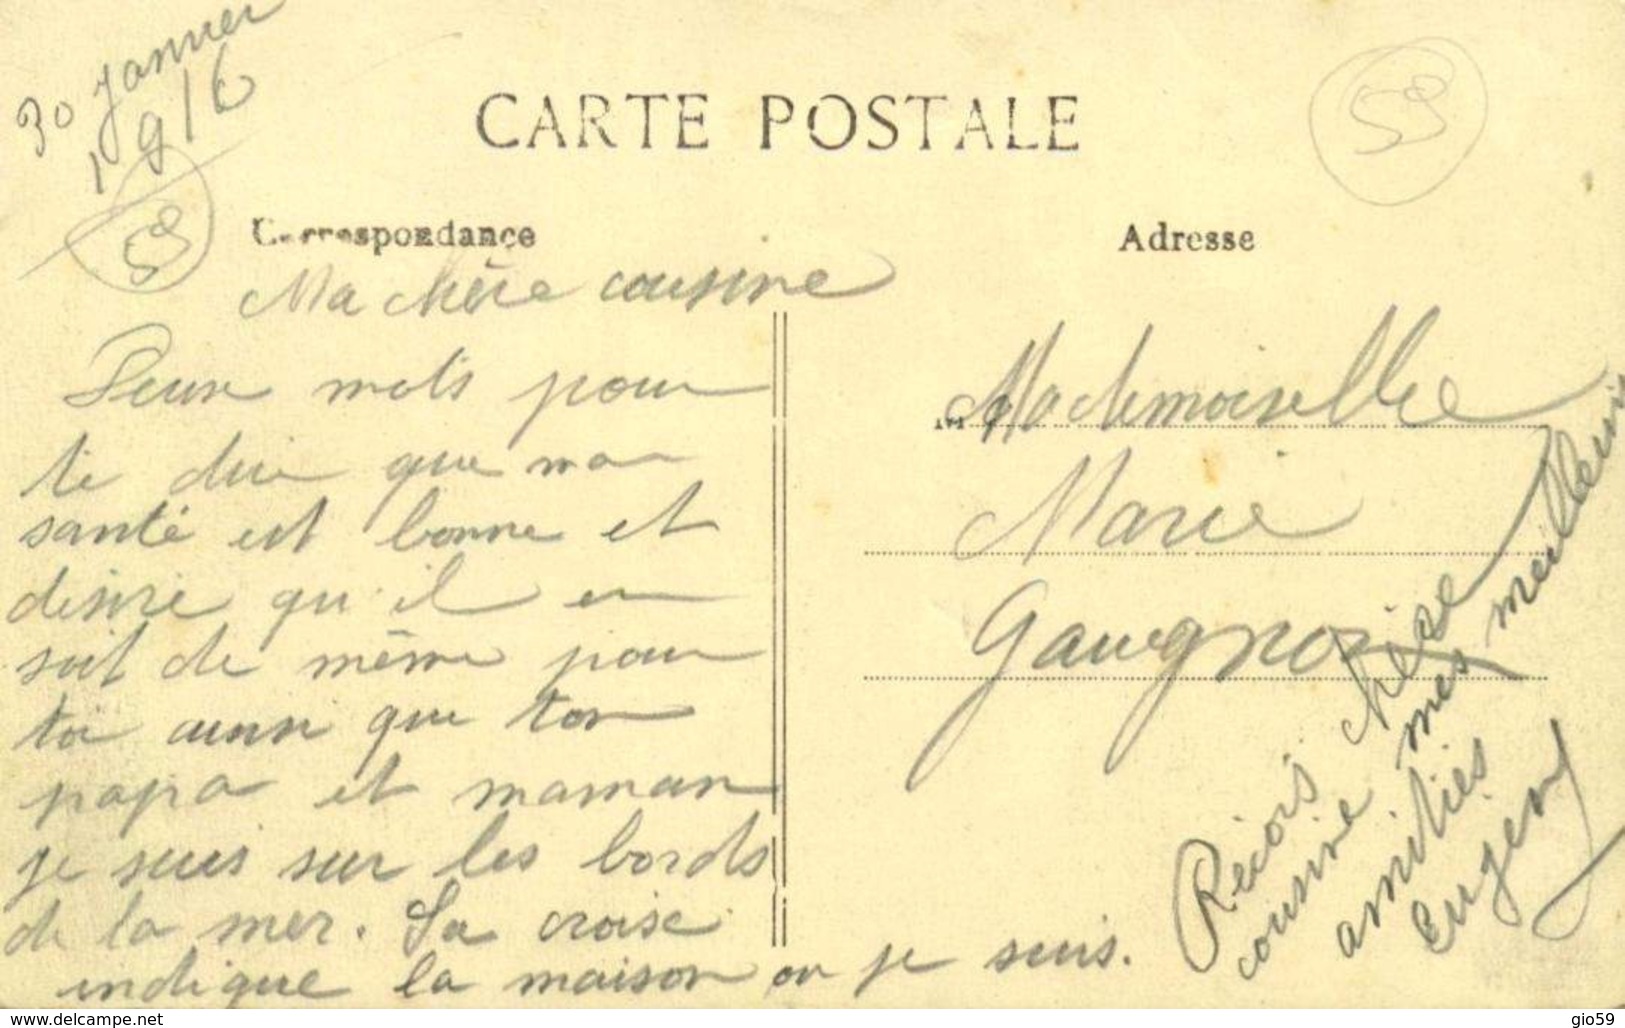 30 Janvier
1916
59
CARTE POSTALE
59
Correspondance
Adresse
Ma chère cousine
Deux mots pour
te dire que ma
santé est bonne et
désire qu'il en
soit de même pour
toi ainsi que ton
papa et maman
je suis sur les bords
de la mer. La croise
indique la maison ou je suis.
M Mademoiselle
Marie
Reçois chère
cousine mes meilleurs
amitiés
Eugene
www.delcampe.net
gio59